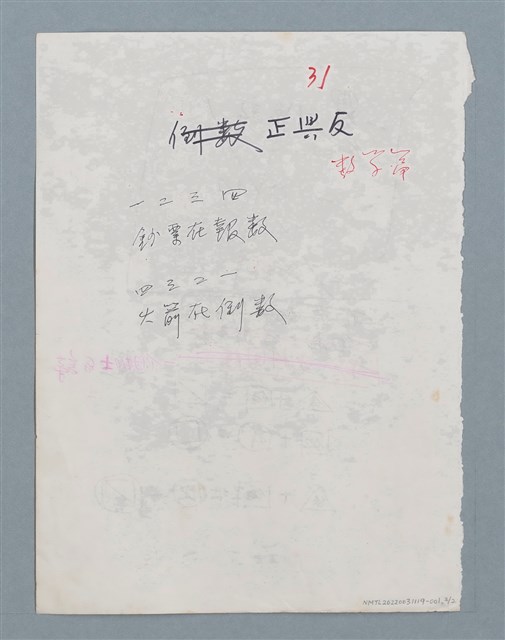 31
倒数 正與反
数学篇
一二三四
鈔票在報数
四三二一
火箭在倒数
NMTL20220031119-001_2/2